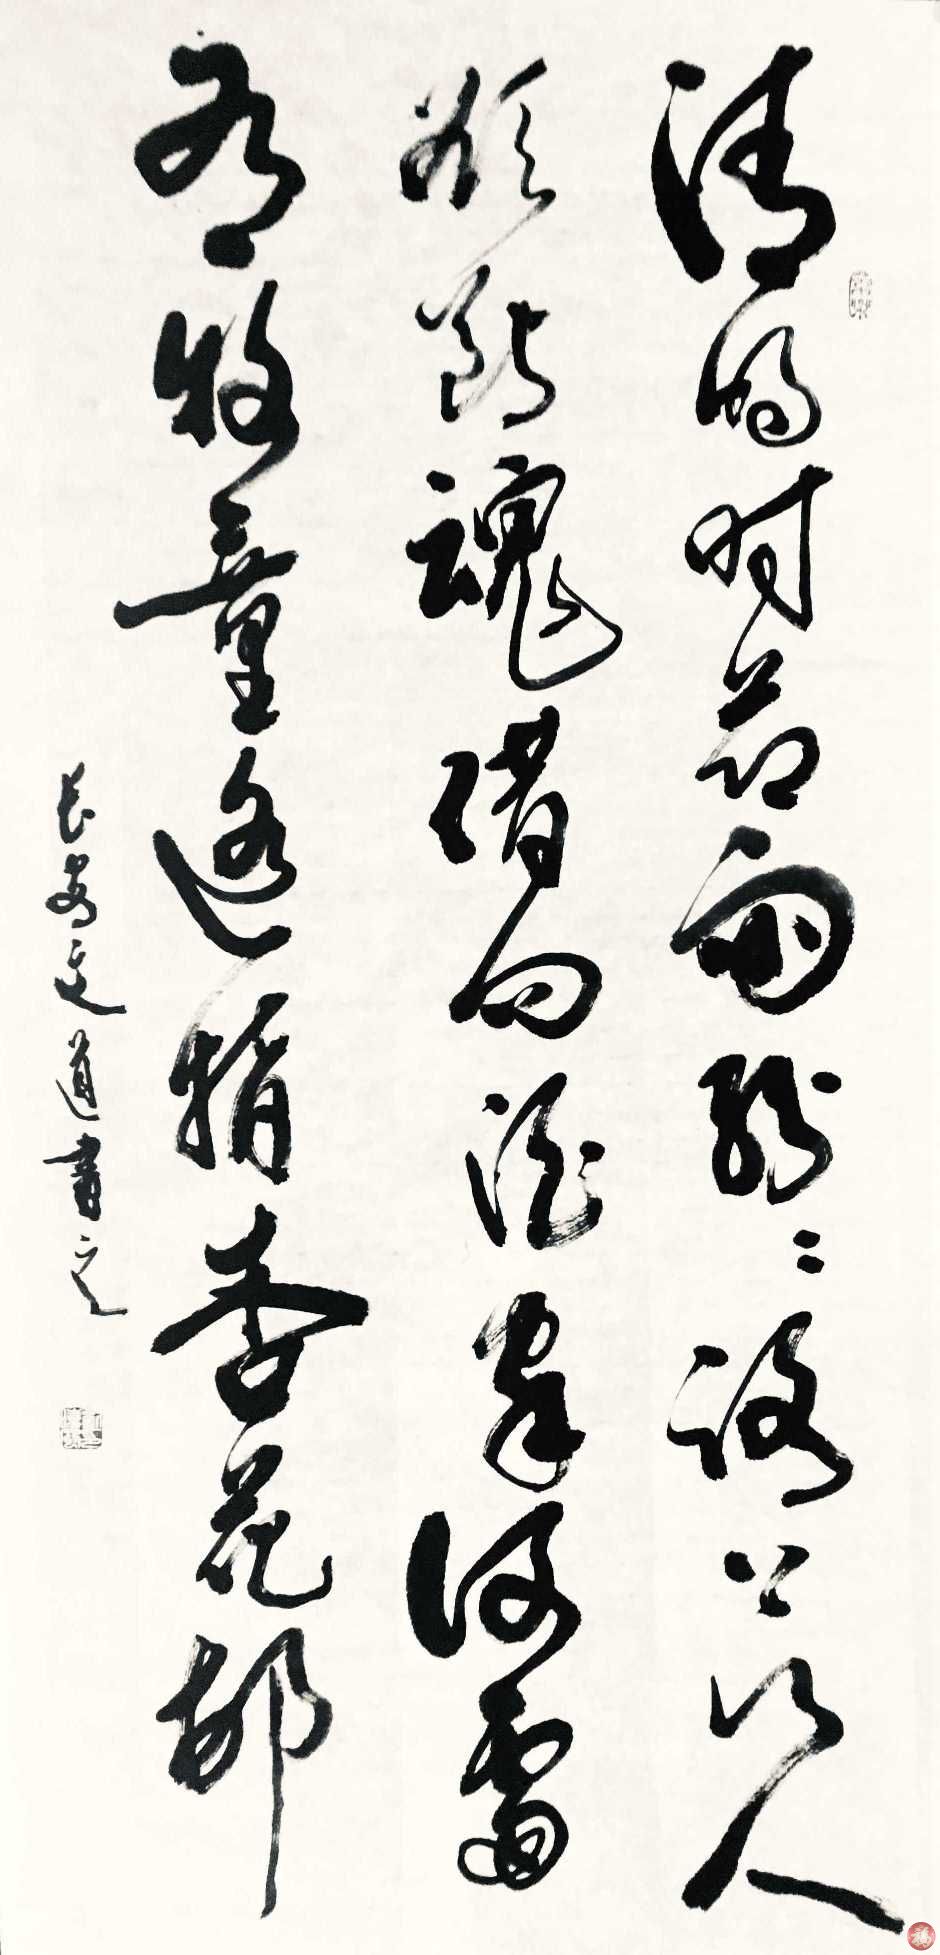 清明时节雨纷〻路上行人
欲断魂借问酒家何處
有牧童遥指杏花邨
长 道書之
福